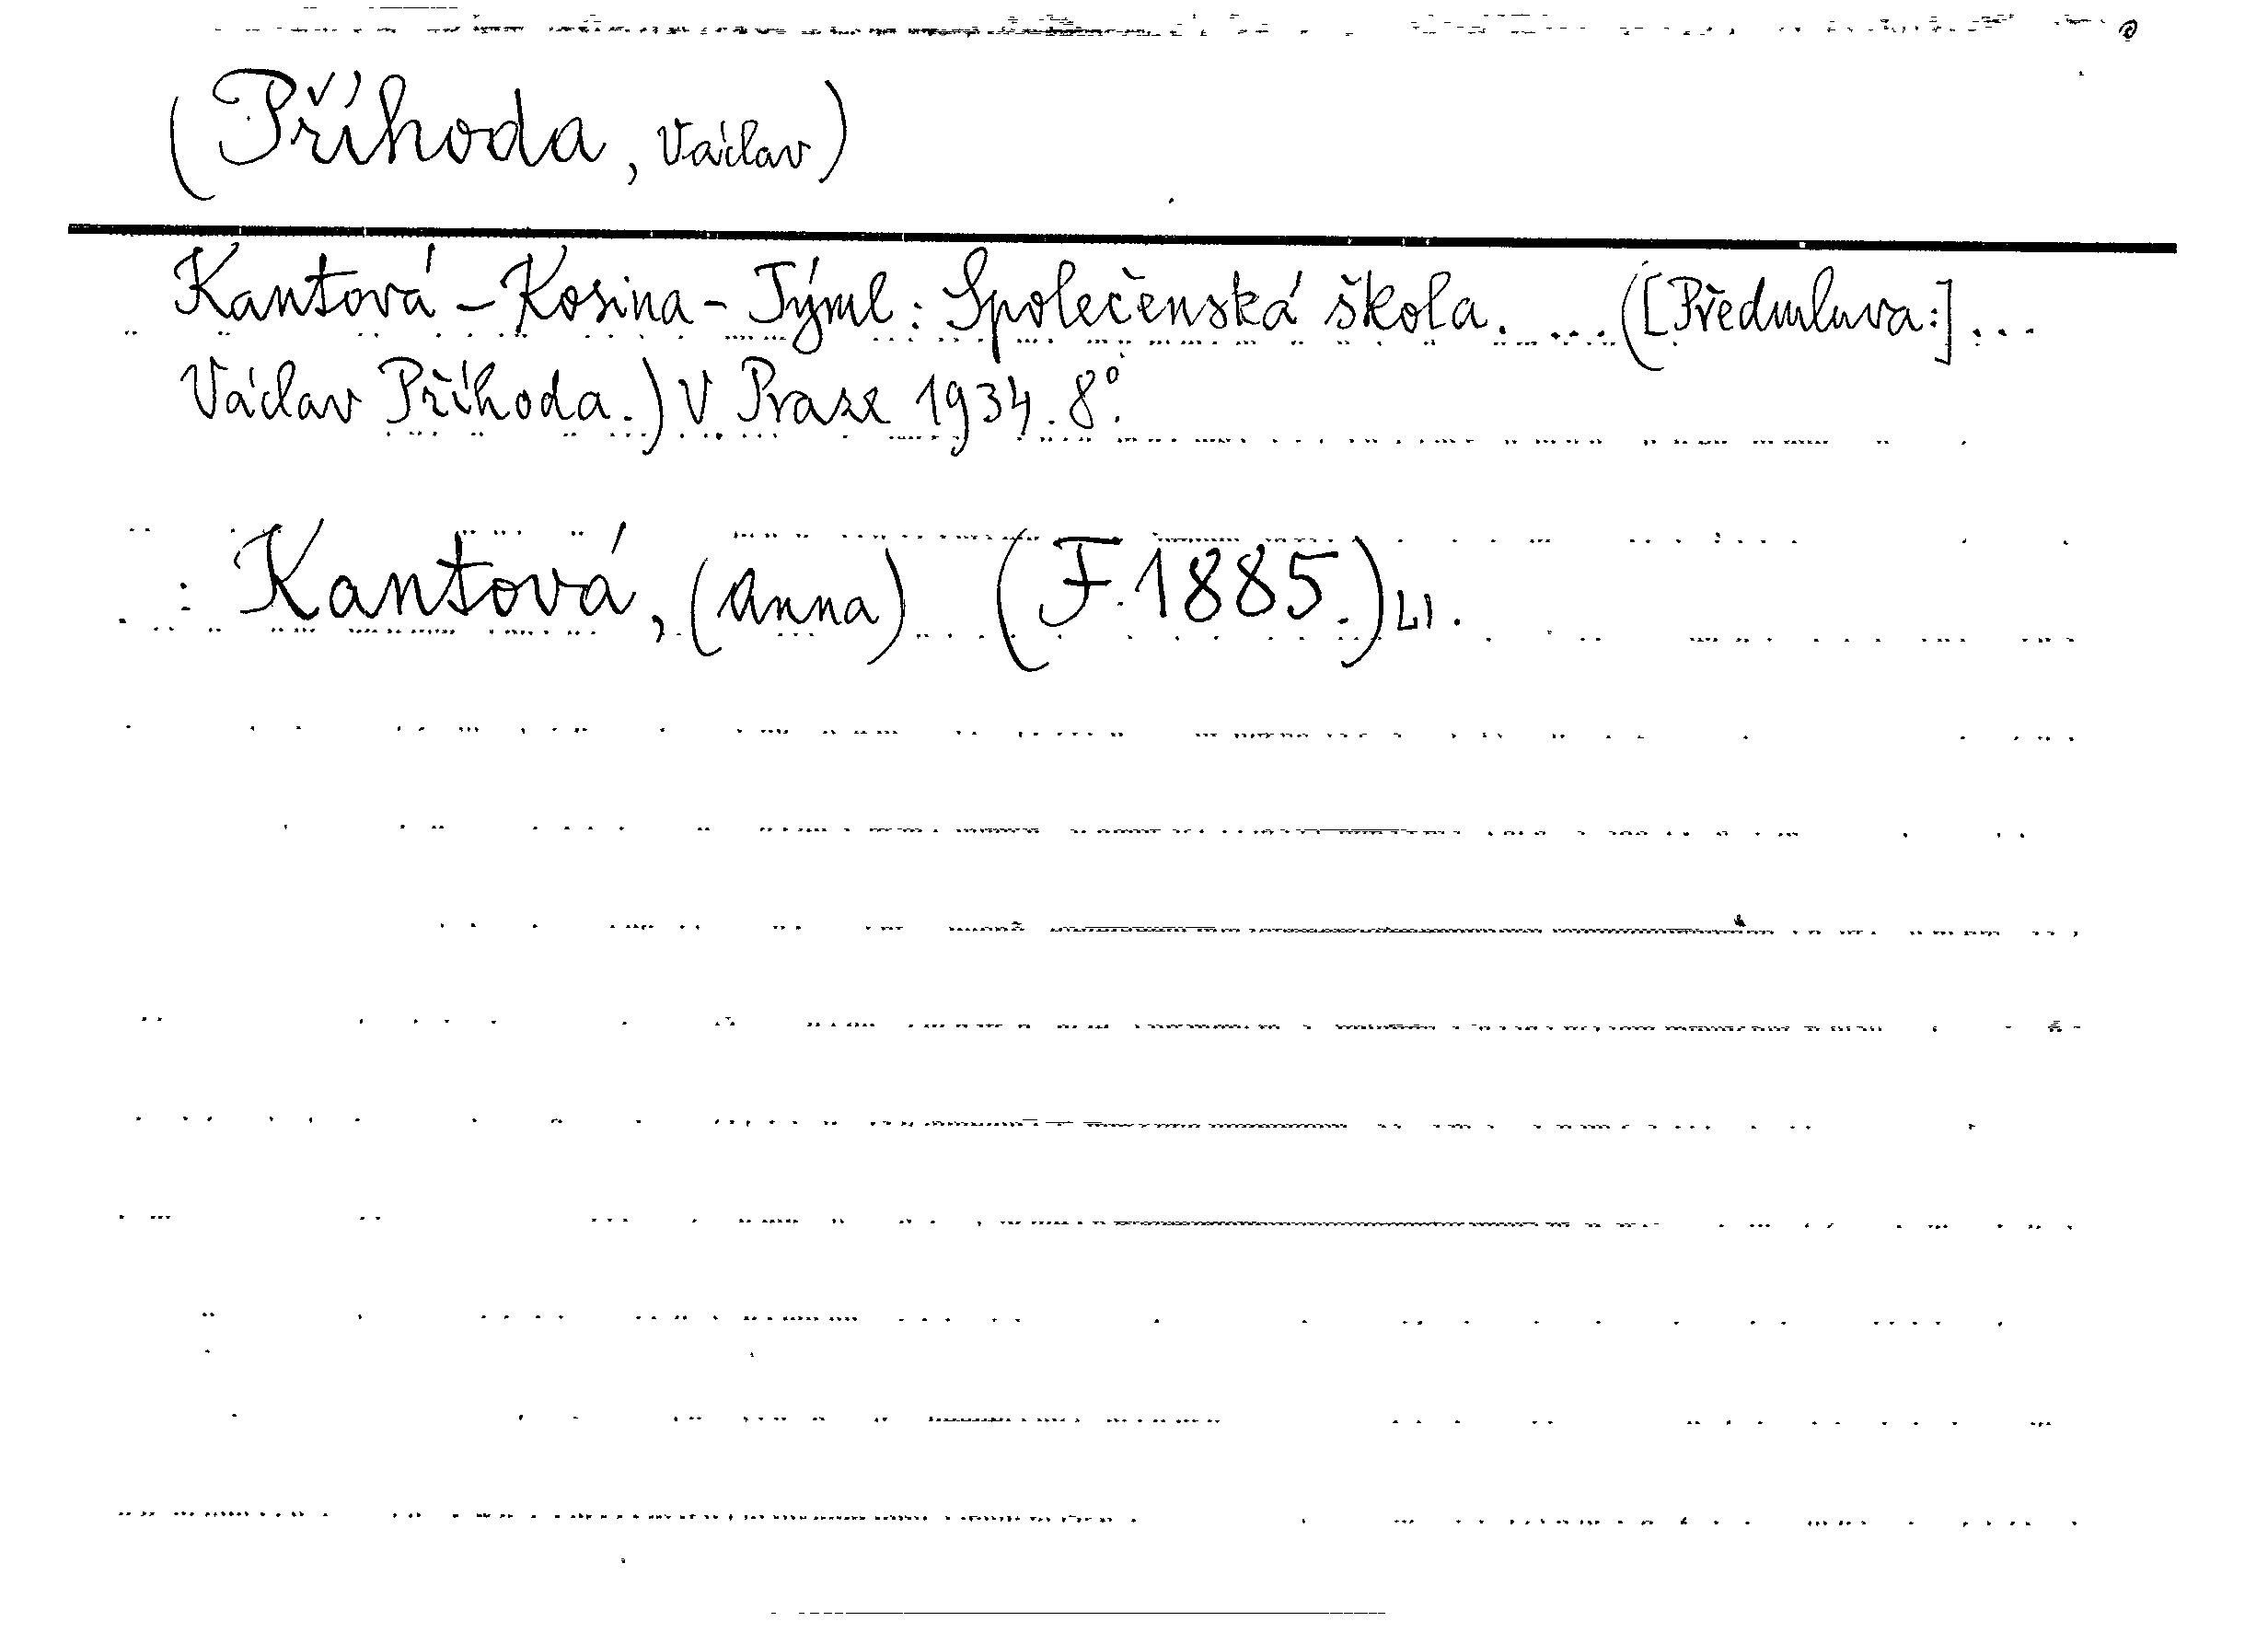 (Příhoda, Václav)
Kantová - Kosina - Týml: Společenská škola. ... ([Předmluva:] ...
Václav Příhoda.) V Praze 1934. 8°.
: Kantová, (Anna) (F. 1885.)